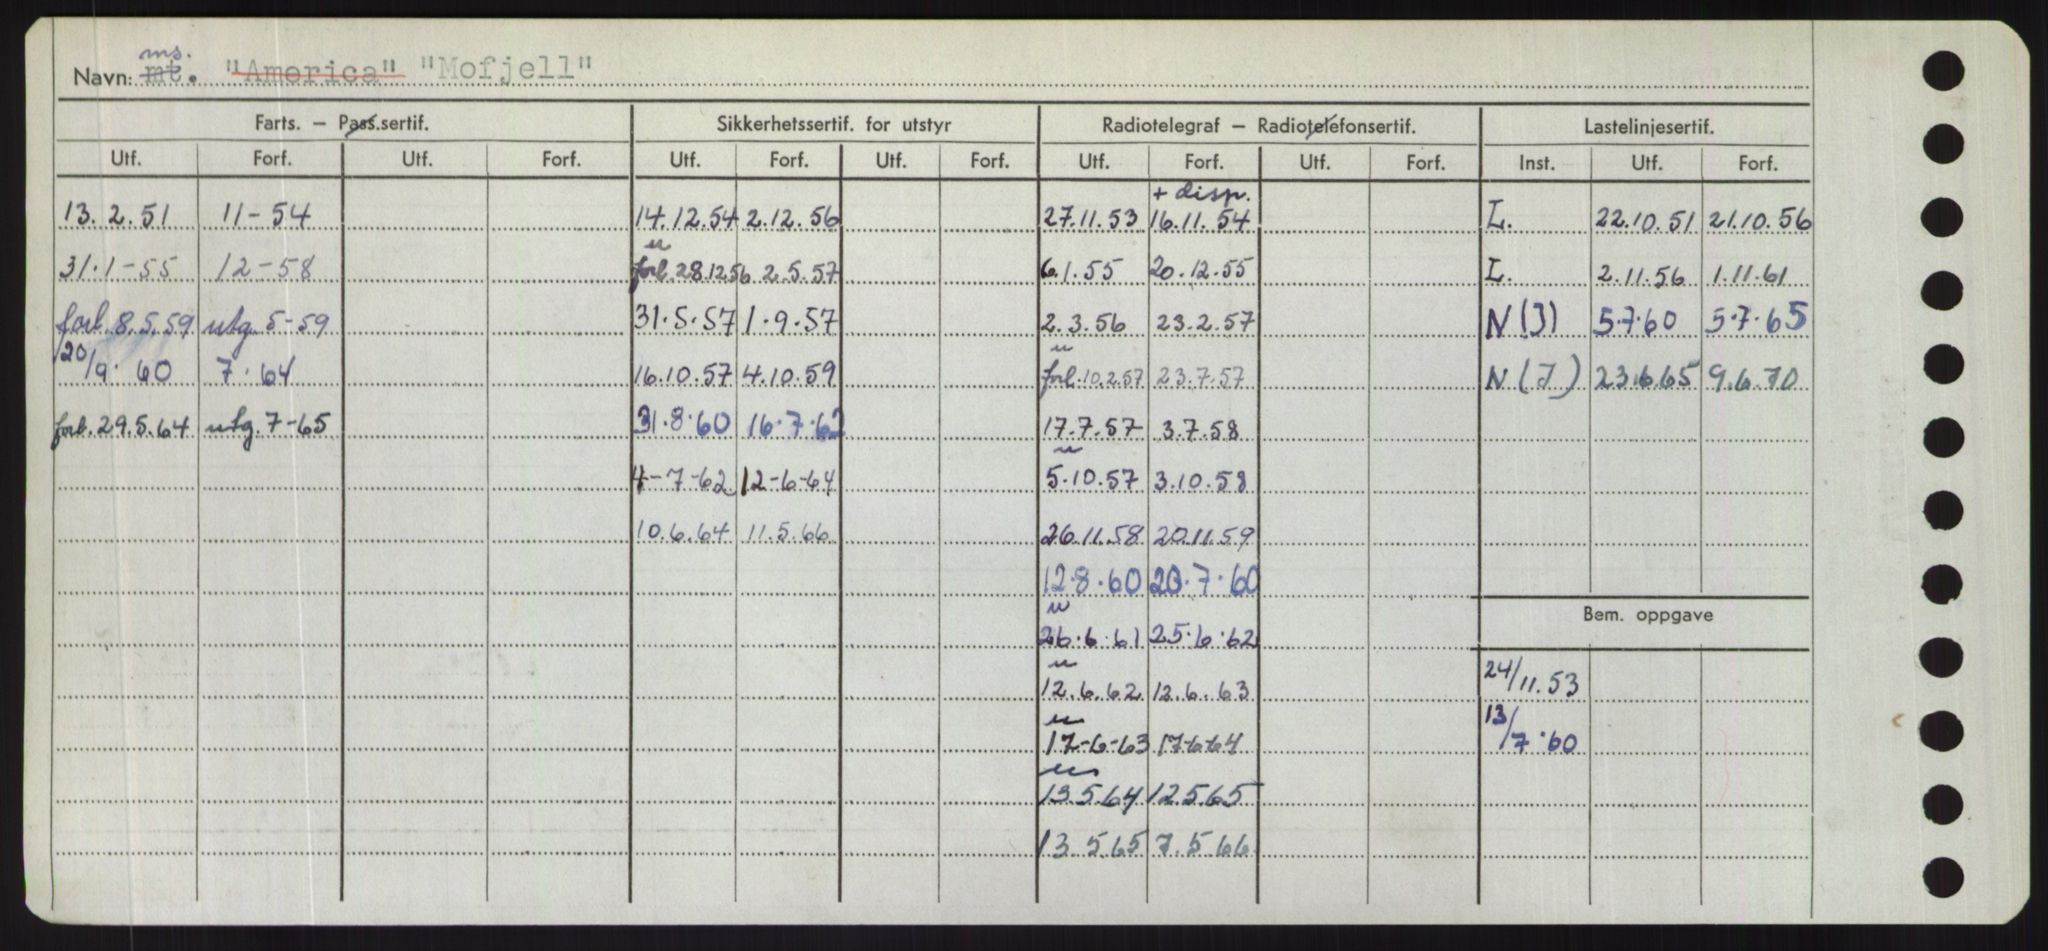 ms.
Navn: mt. "America" "Mofjell"
Farts. – Pass.sertif. Sikkerhetssertif. for utstyr Radiotelegraf – Radiotelefonsertif. Lastelinjesertif.
Utf. Forf. Utf. Forf. Utf. Forf. Utf. Forf. Utf. Forf. Utf. Forf. Inst. Utf. Forf.
+ disp.
13.2.51 11-54 14.12.54 2.12.56 27.11.53 16.11.54 L. 22.10.51 21.10.56
31.1-55 12-58 forl. 28.12.56 2.5.57 6.1.55 20.12.55 L. 2.11.56 1.11.61
forl. 8.5.59 utg. 5-59 31.5.57 1.9.57 2.3.56 23.2.57 N(J) 5.7.60 5.7.65
20/9.60 7.64 16.10.57 4.10.59 forl. 10.2.57 23.7.57 N(J) 23.6.65 9.6.70
forl. 29.5.64 utg. 7-65 31.8.60 16.7.62 17.7.57 3.7.58
4-7-62 12-6-64 5.10.57 3.10.58
10.6.64 11.5.66 26.11.58 20.11.59
12.8.60 20.7.60
Bem. oppgave
26.6.61 25.6.62
12.6.62 12.6.63 24/11.53
17-6-63 17-6-64 13/7.60
13.5.64 12.5.65
13.5.65 7.5.66